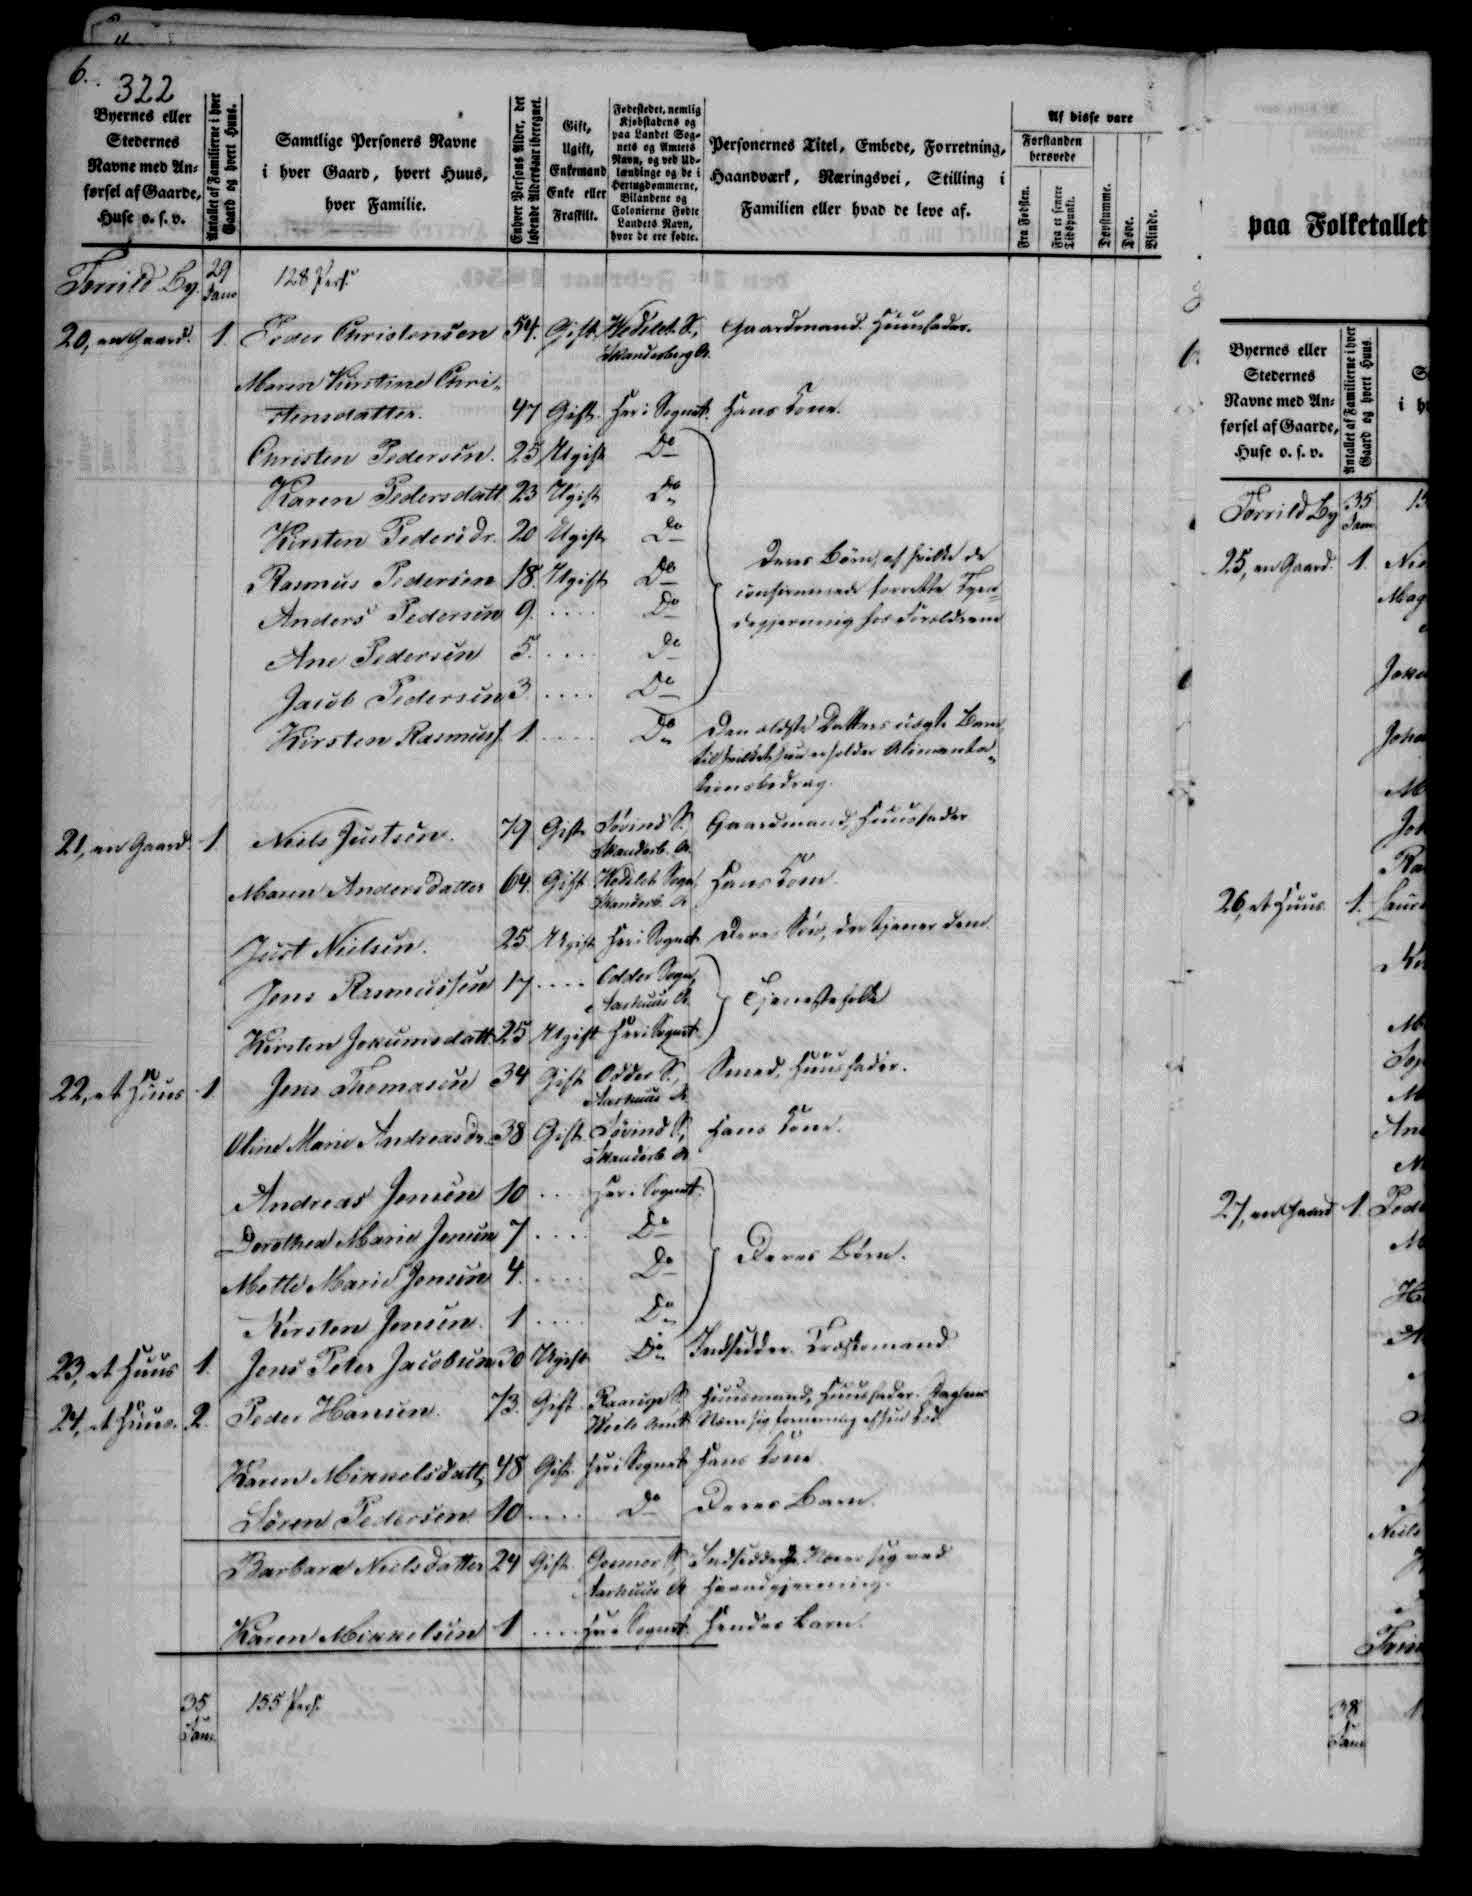 6.
322
Byernes eller
Stedernes
Navne med An-
førsel af Gaarde,
Huse o. s. v.
Antallet af Familierne i hver
Gaard og hvert Huus.
Samtlige Personers Navne
i hver Gaard, hvert Huus,
hver Familie.
Enhver Persons Alder, det
løbende Aldersaar iberegnet.
Gift,
Ugift,
Enkemand
Enke eller
Fraskilt.
Fødestedet, nemlig
Kjøbstadens og
paa Landet Sog-
nets og Amtets
Navn, og ved Ud-
lændinge og de i
Hertugdømmerne,
Bilandene og
Colonierne Fødte
Landets Navn,
hvor de ere fødte.
Personernes Titel, Embede, Forretning,
Haandværk, Næringsvei, Stilling i
Familien eller hvad de leve af.
Af disse vare
Forstanden
berøvede
Fra Fødslen.
Fra et senere
Tidspunkt.
Døvstumme.
Døve.
Blinde.
Torrild By. 29 Fam 128 Pers.
20, en Gaard. 1. Peder Christensen 54. Gift Hedelst. S., Gaardmand. Huusfader.
Skanderborg A.
Maren Kirstine Chri-
stensdatter. 47 Gift. Her i Sognet. Hans Kone.
Christen Pedersen. 25 Ugift Do
Karen Pedersdatt 23 Ugift Do
Kirsten Pedersdr. 20 Ugift Do
Deres Børn, af hvilke de
Rasmus Pedersen 18 Ugift Do
confirmerede forrette Tyen-
Anders Pedersen 9. .... Do
degjerning hos Forældrene
Ane Pedersen 5. .... Do
Jacob Pedersen 3 .... Do
Kirsten Rasmuss. 1. .... Do Den ældste Datters uægte Barn,
til hvilket hun erholder Alimenta-
tionsbidrag.
21, en Gaard. 1. Niels Justsen. 79 Gift Søvind S. Gaardmand, Huusfader
Skanderb. A.
Maren Andersdatter 64. Gift Hedelst Sogn, Hans Kone.
Skanderb. A
Just Nielsen. 25 Ugift Her i Sognet Deres Søn, der tjener dem
Jens Rasmussen 17 .... Odder Sogn,
Aarhuus A. Tjenestefolk
Kirsten Jokumsdatt 25 Ugift Her i Sognet
22, et Huus 1 Jens Thomasen 34 Gift Odder S., Smed, Huusfader.
Aarhuus A.
Oline Marie Andreasdr. 38 Gift Søvind S, Hans Kone.
Skanderb. A
Andreas Jensen 10 .... Her i Sognet.
Dorothea Marie Jensen 7 .... Do
Deres Børn.
Mette Marie Jensen 4. .... Do
Kirsten Jensen. 1 .... Do
23, et Huus 1. Jens Peter Jacobsen 30 Ugift Do Indsidder. Træskomand
24, et Huus. 2. Peder Hansen. 73. Gift Raarup S. Huusmand, Huusfader.
Veile Amt
Karen Mikkelsdatt, 48 Gift. Her i Sognet Hans Kone
Søren Pedersen. 10 .... Do Deres Barn.
Barbara Nielsdatter 24 Gift. Gosmer S, Indsidderske Nærer sig ved
Aarhuus A Haandgjerning.
Karen Mikkelsen 1 .... Her i Sognet. Hendes Barn.
35 155 Pers.
Fam.
paa Folketallet
Byernes eller
Stedernes
Navne med An-
førsel af Gaarde,
Huse o. s. v.
Antallet af Familierne i hver
Gaard og hvert Huus.
Torrild By 35
Fam
25, en Gaard. 1.
26, et Huus. 1.
27, en Gaard 1.
Niels
38
Fam